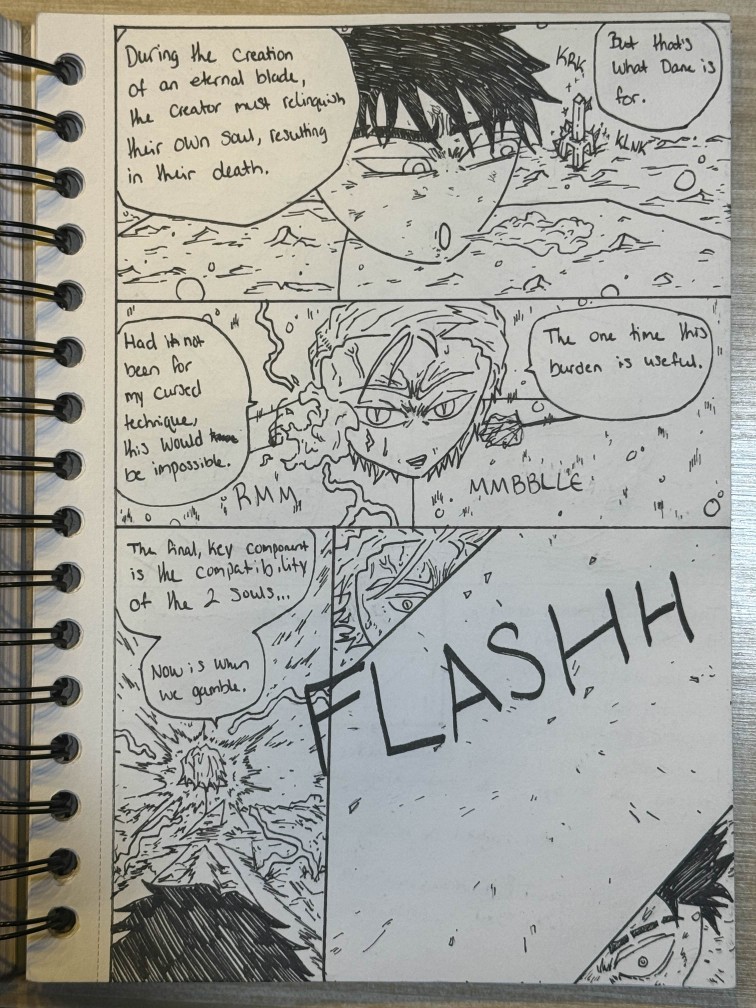 During the Creation
of an eternal blade,
the Creator must relinquish
their own Soul, resulting
in their death.
But that's
What Dane is
for.
KRK
KLNK
Had it not
been for
my cursed
technique,
this would
be impossible.
The one time this
burden is useful.
RMM
MMBBLLE
The final, key component
is the compatibility
of the 2 Souls...
Now is when
we gamble.
FLASHH